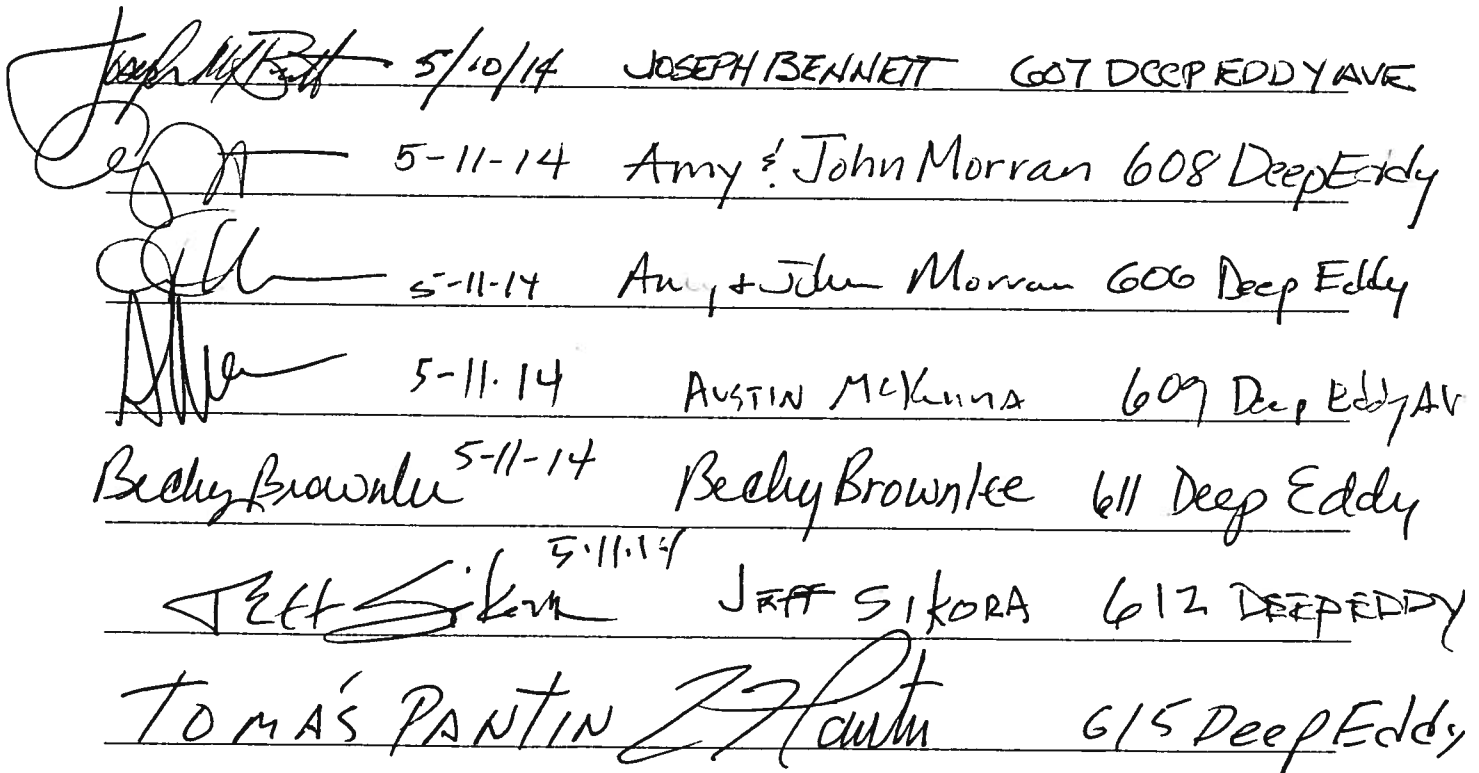 Joseph M Bennett 5/10/14 JOSEPH BENNETT 607 DEEP EDDY AVE
5-11-14 Amy & John Morran 608 Deep Eddy
5-11-14 Amy + John Morran 606 Deep Eddy
5-11-14 AUSTIN McKenna 609 Deep Eddy AV
Becky Brownlee 5-11-14 Becky Brownlee 611 Deep Eddy
Jeff Sikora 5.11.14 JEFF SIKORA 612 DEEP EDDY
TOMÁS PANTIN T Pantin 615 Deep Eddy